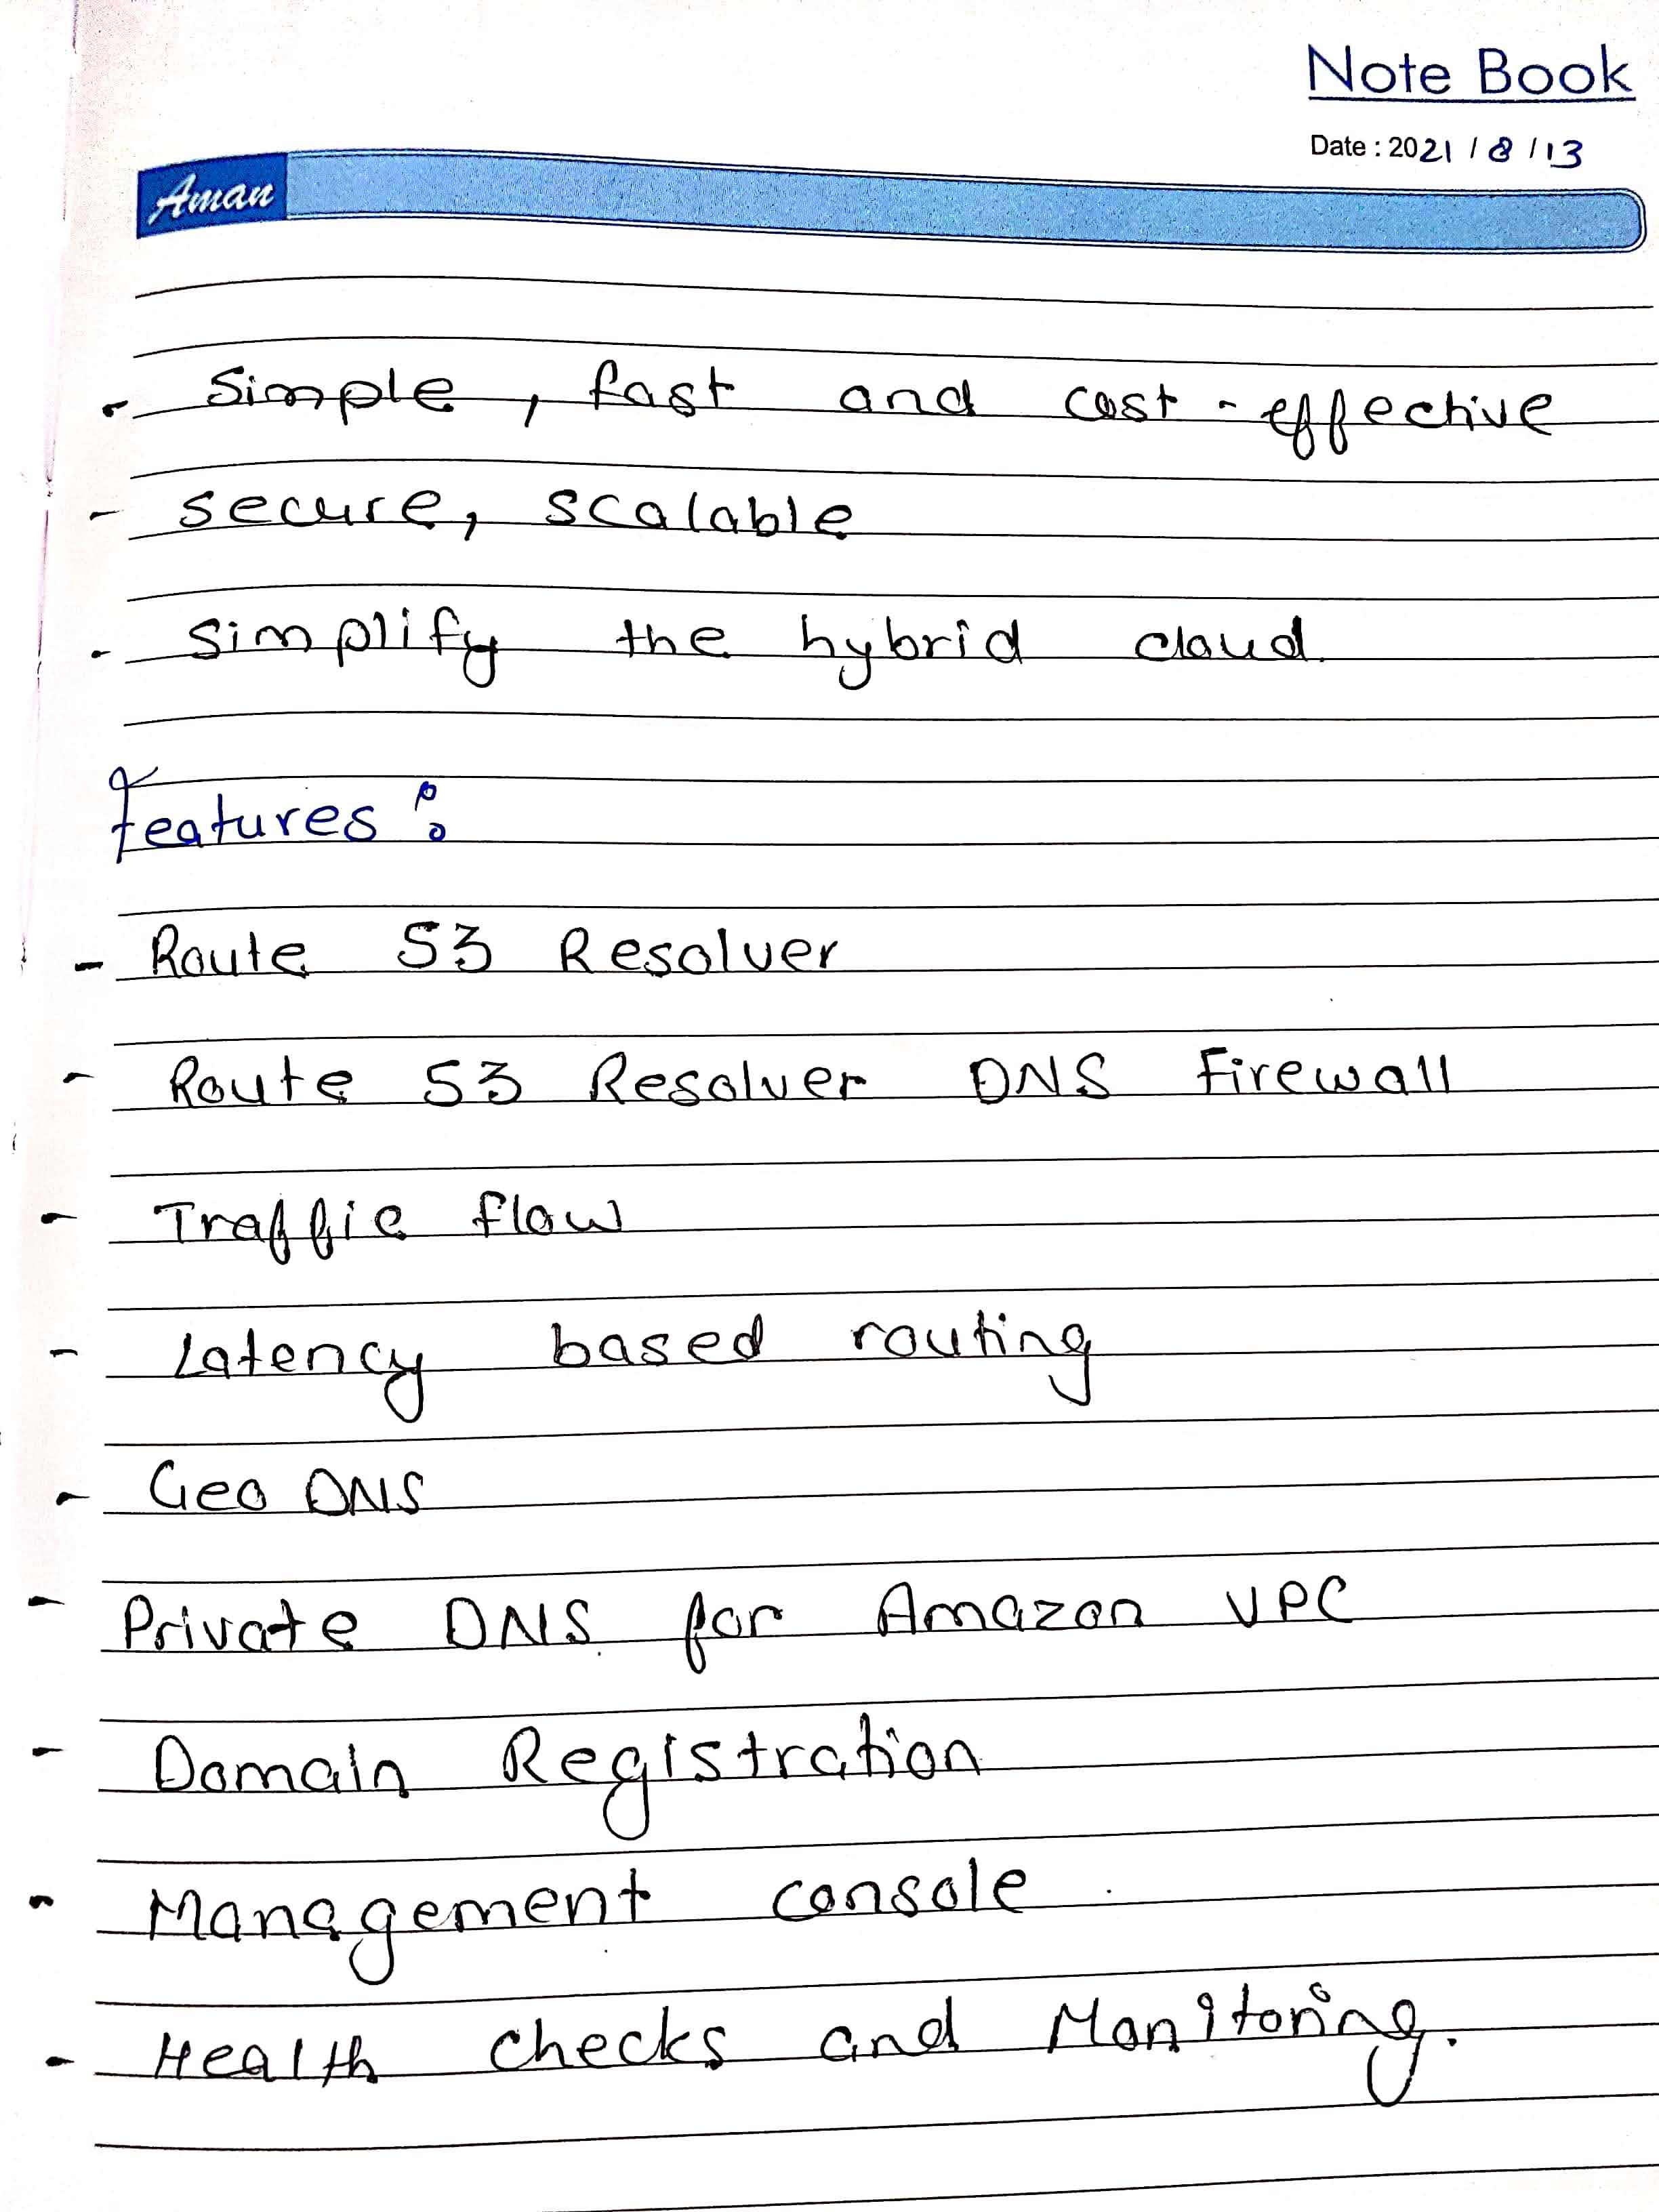 Note Book
Date : 2021 / 8 / 13
Aman
- Simple, fast and cost-effective
- secure, scalable
- simplify the hybrid cloud.
Features :
- Route 53 Resolver
- Route 53 Resolver DNS Firewall
- Traffic flow
- Latency based routing
- Geo DNS
- Private DNS for Amazon VPC
- Domain Registration
- Management console
- Health checks and Monitoring.